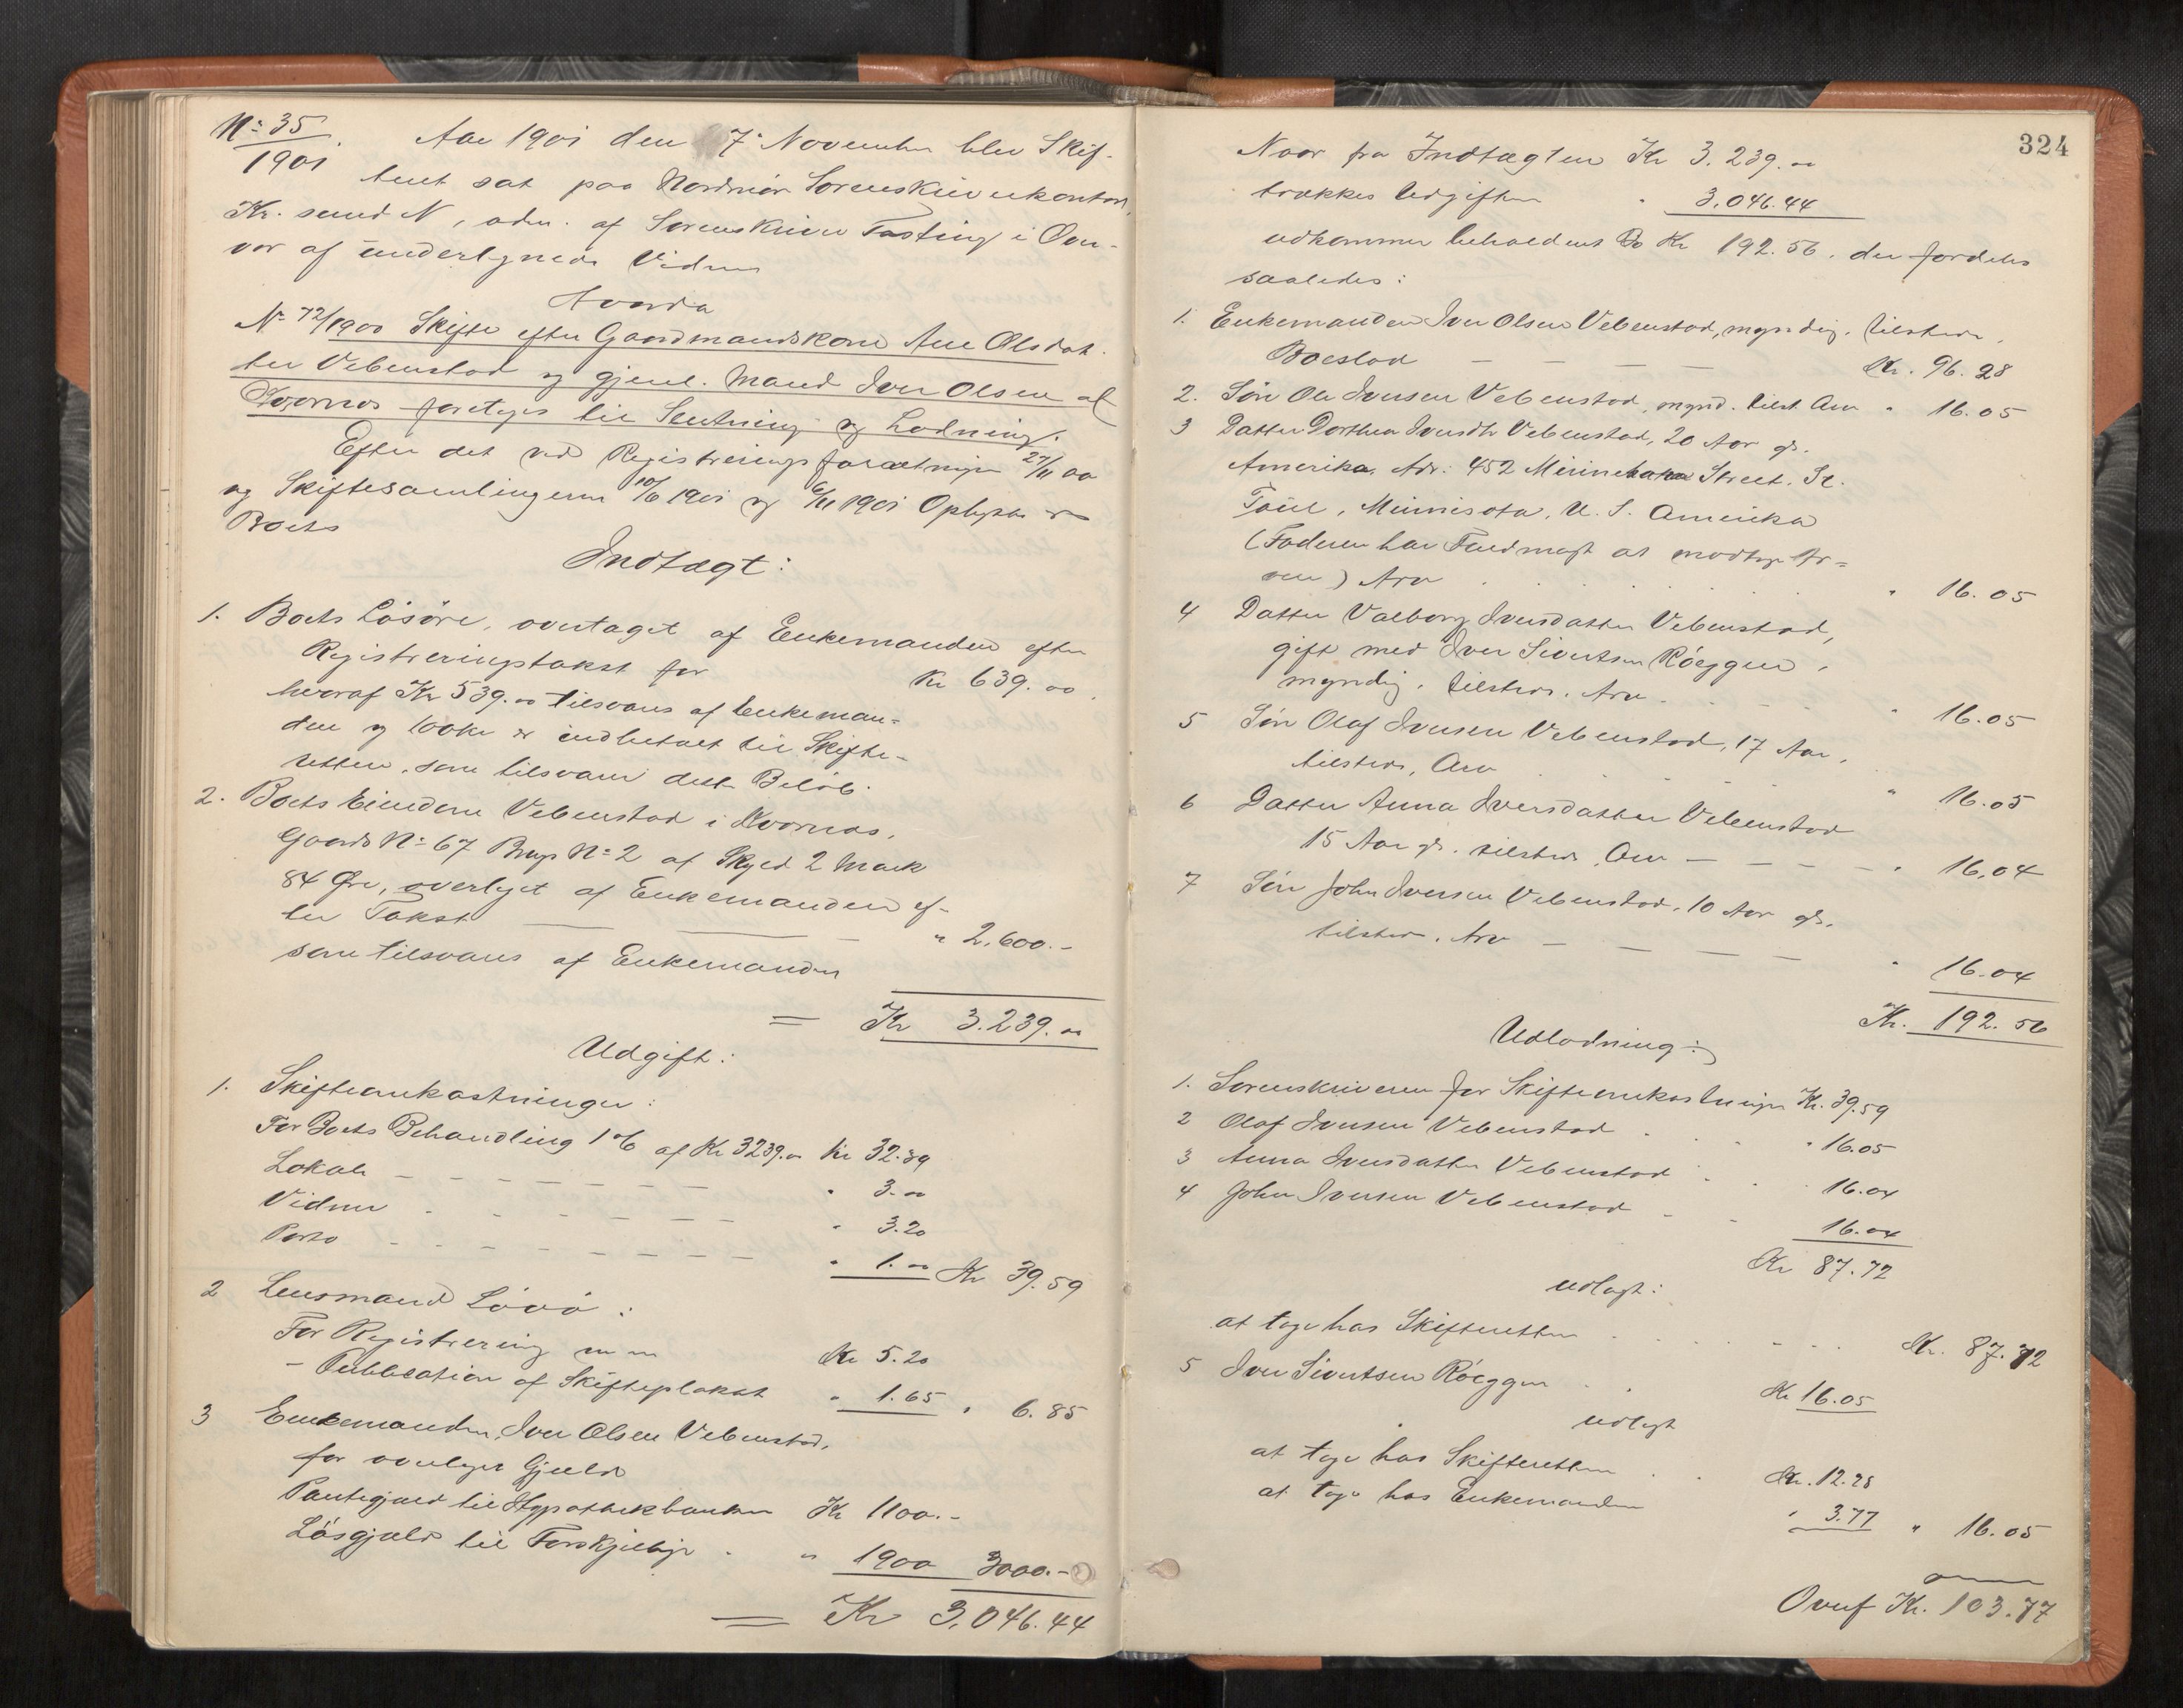 No 35
1901. Aar 1901 den 7. November blev Skif-
teret sat paa Nordmør Sorenskriverkontor,
Kr. sund N, adm. af Sorenskriver Fasting i Over-
vær af undertegnede Vidner
Hvorda
No 72/1900 Skifte efter Gaardmandskone Ane Olsdat-
ter Vebenstad og gjenl. Mand Iver Olsen af
Kvernes foretages til Slutning og Lodning.
Efter det ved Registreringsforretningen 27/11 00
og Skiftesamlingerne 10/6 1901 og 6/11 1901 Oplyste er
Boets
Indtægt:
1. Boets Løsøre, overtaget af Enkemanden efter
Registreringstakst for Kr 639.00.
hvoraf Kr 539.00 tilsvares af Enkeman-
den og 100 Kr er indbetalt til Skifte-
retten, som tilsvarer dette Beløb.
2. Boets Eiendom Vebenstad i Kvernes,
Gaards No 67 Brugs No 2 af Skyld 2 Mark
84 Øre, overtaget af Enkemanden ef-
ter Takst — — — " 2.600.-
som tilsvares af Enkemanden
= Kr 3.239.00
Udgift:
1. Skifteomkostninger:
For Boets Behandling 1 % af Kr 3239.00 Kr 32.39
Lokale - - - - - - - " 3.00
Vidner - - - - - - - " 3.20
Porto - - - - - - - - " 1.00 Kr 39.59
2 Lensmand Løvø:
For Registrering m m Kr 5.20
- Publication af Skifteplakat " 1.65 " 6.85
3 Enkemanden, Iver Olsen Vebenstad,
for overtagen Gjæld
Pantegjæld til Hypothekbanken Kr 1100.-
Løsgjæld til Forskjellige - " 1900 3000.-
= Kr 3.046.44
324
Naar fra Indtægten Kr 3.239.00
trækkes Udgiften " 3.046.44
udkommer beholdent Bo Kr 192.56. der fordeles
saaledes:
1. Enkemanden Iver Olsen Vebenstad, myndig, tilstede,
Boeslod — — — — Kr. 96.28
2. Søn Ole Iversen Vebenstad, mynd. tilst. Arv " 16.05
3 Datter Dorthea Iversdtr Vebenstad, 20 Aar gl.
Amerika. Adr: 452 Minnehaha Street. St.
Paul, Minnisota, U. S. Amerika
(Faderen har Fuldmagt at modtage Ar-
ven) Arv . . . . . " 16.05
4 Datter Valborg Iversdatter Vebenstad,
gift med Iver Sivertsen Røeggen,
myndig, tilstede. Arv - - - " 16.05
5 Søn Olaf Iversen Vebenstad, 17 Aar,
tilstede, Arv . . . " 16.05
6 Datter Anna Iversdatter Vebenstad
15 Aar gl. tilstede, Arv - - - - " 16.04
7 Søn John Iversen Vebenstad, 10 Aar gl.
tilstede. Arv — — — — " 16.04
Kr. 192.56
Udlodning:
1. Sorenskriveren for Skifteomkostninger Kr. 39.59
2 Olaf Iversen Vebenstad . . . " 16.05
3 Anna Iversdatter Vebenstad . . . 16.04
4 John Iversen Vebenstad - - 16.04
Kr 87.72
udlagt:
at tage hos Skifteretten . . . . . . Kr. 87.72
5 Iver Sivertsen Røeggen . . Kr 16.05
udlagt
at tage hos Skifteretten . . Kr. 12.28
at tage hos Enkemanden " 3.77 " 16.05
Overf Kr. 103.77